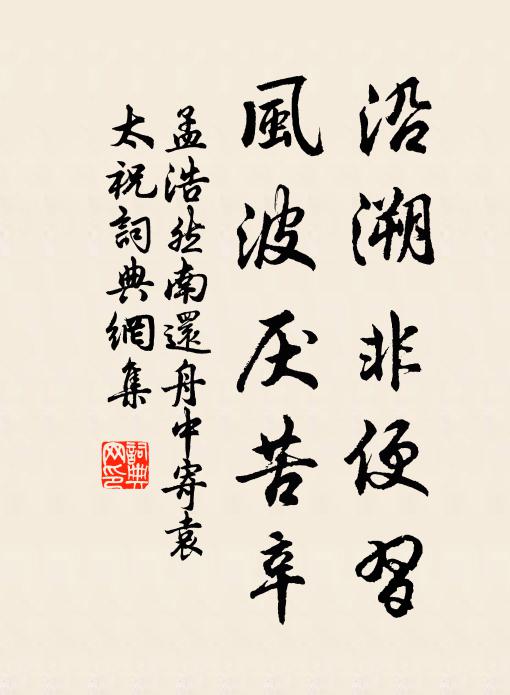 沿溯非便習
風波厌苦辛
孟浩然南還舟中寄袁
太祝詞典網集
詞典網印